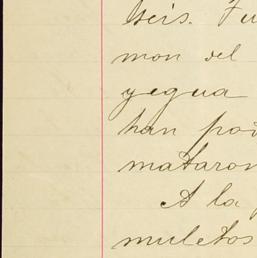 seis. Fu
mon del
yegua
han pod
mataron
A la
muletos